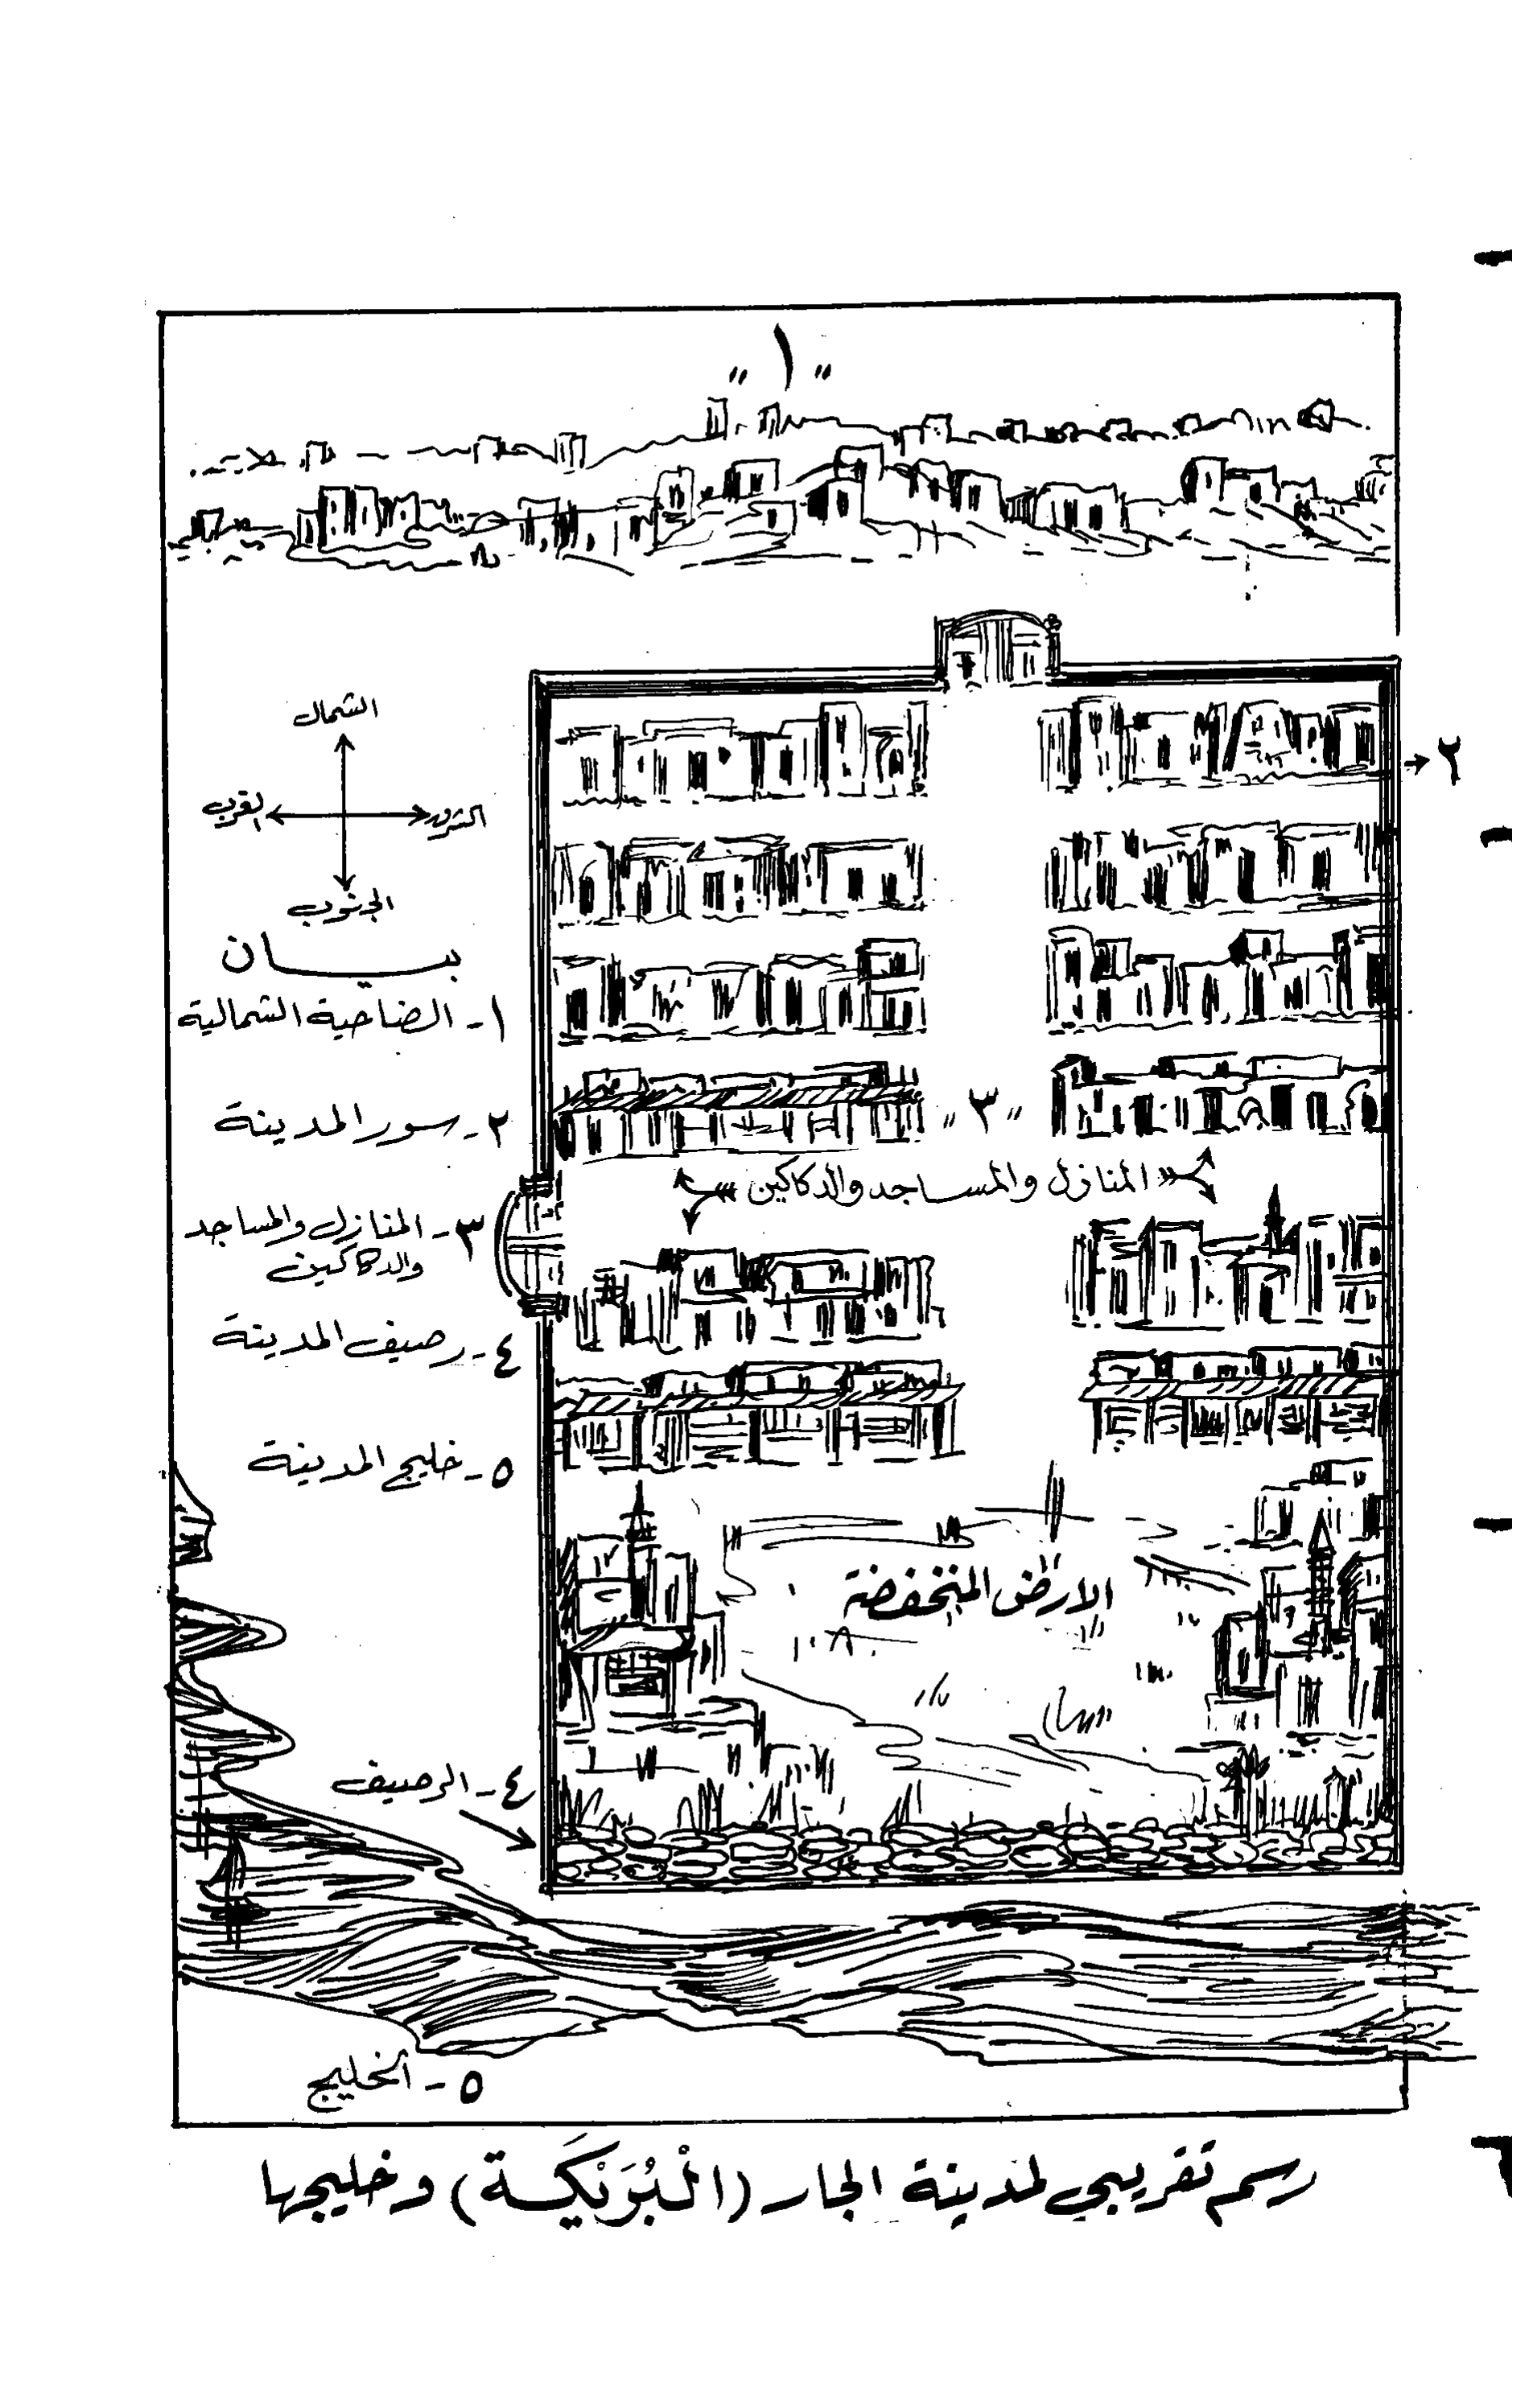 "١"
٢
الشمال
الغرب
الشرق
الجنوب
بيـــان
١- الضاحية الشمالية
٢- سور المدينة
٣- المنازل والمساجد
والدكاكين
٤- رصيف المدينة
٥- خليج المدينة
"٣"
المنازل والمساجد والدكاكين
الارض المنخفضة
٤- الرصيف
٥- الخليج
رسم تقريبي لمدينة الجار (الْبُرَيْكَة) وخليجها